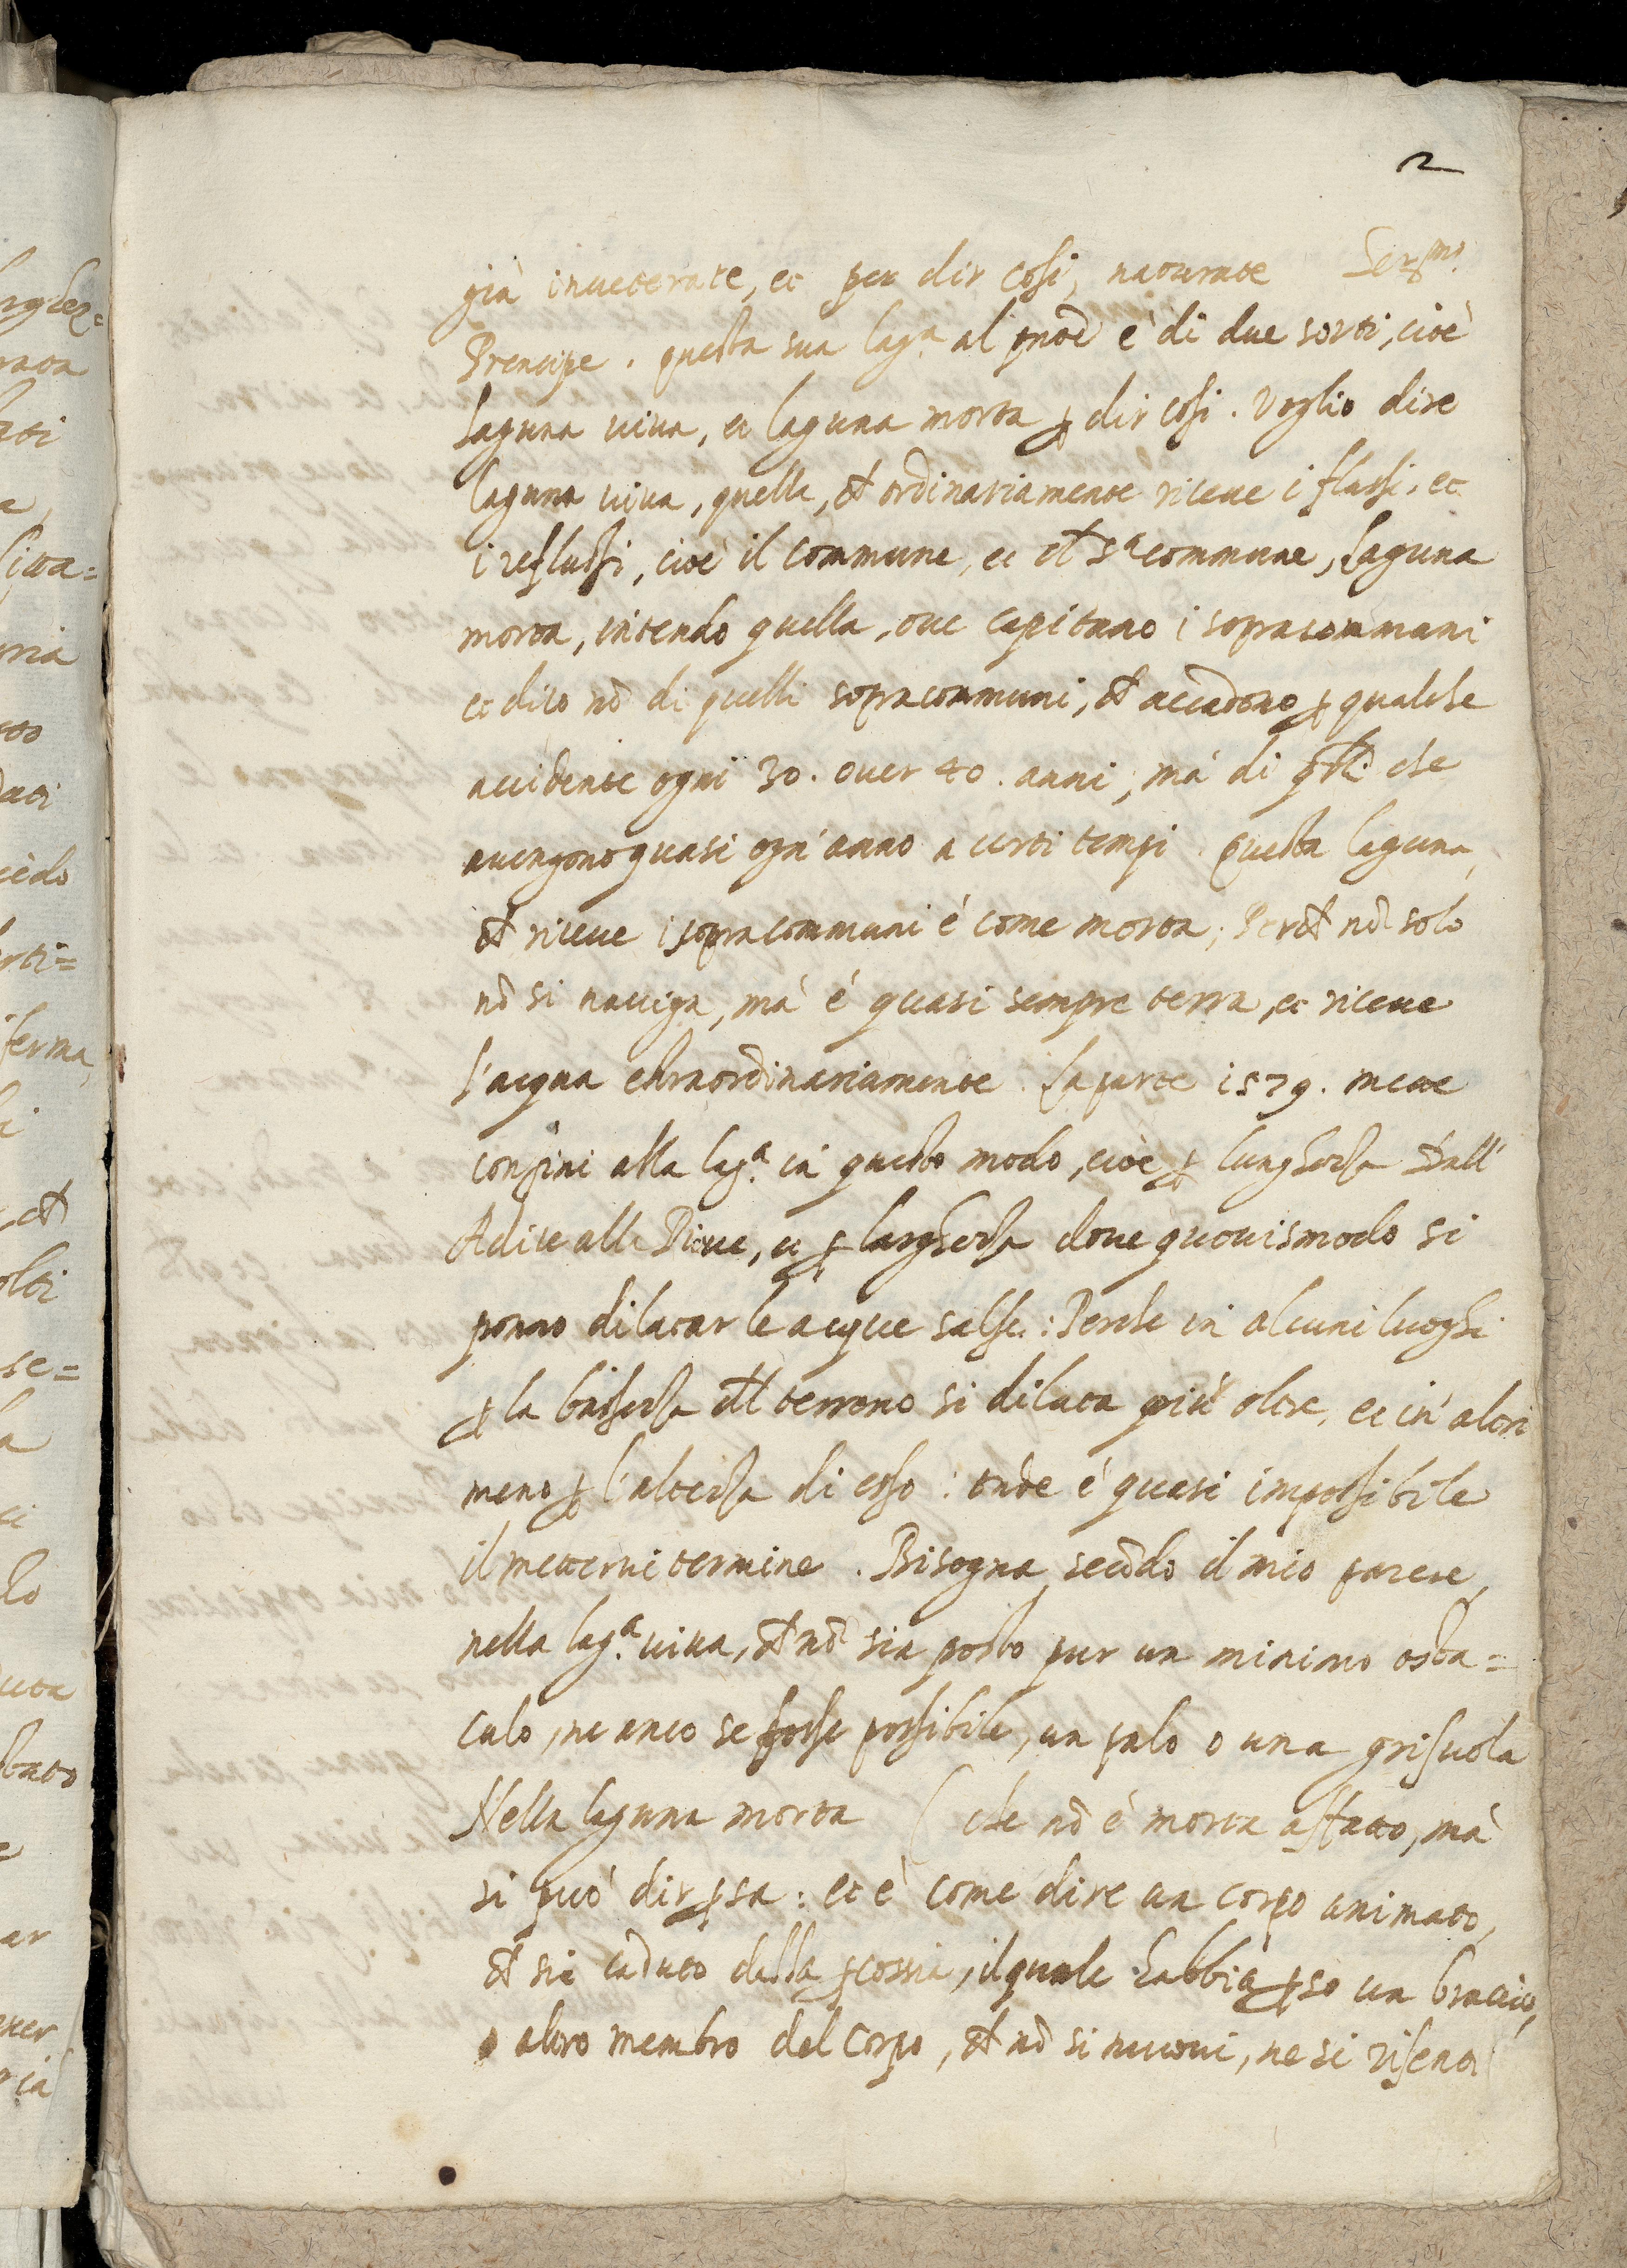 2
già inueterate, et per dir cosi, naturate Ser.mo
Prencipe. questa sua lag.a al pñte è di due sorti, cioè
laguna uiua, et laguna morta ꝑ dir cosi. Voglio dire
laguna uiua, quella, ch̃ ordinariamente riceue i flussi, et
i reflussi, cioè il commune, et il s.a commune, laguna
morta, intendo quella, oue capitano i sopracommuni
et dico nõ di quelli sopracommuni, ch̃ accadono ꝑ qualche
accidente ogni 30. ouer 40. anni, mà di che
auengono quasi ogn'anno a certi tempi. questa laguna,
ch̃ riceue i sopracommuni è come morta; Perch̃ nõ solo
nõ si nauiga, mà è quasi sempre terra, et riceue
l'acqua extraordinariamente. La parte 1579. mette
confini alla lag.a in questo modo, cioè ꝑ lunghezza dall'
Adice alla Piaue, et ꝑ larghezza doue quouismodo si
ponno dilatar le acque salse: Perche in alcuni luoghi
ꝑ la bassezza del terreno si dilata più oltre, et in altri
meno ꝑ l'altezza di esso: onde è quasi impossibile
il metterui termine. Bisogna, secõdo il mio parere,
nella lag.a uiua, ch̃ nõ sia posto pur un minimo osta=
culo, ne anco se fosse possibile, un palo o una grisuola
Nella laguna morta (che nõ è morta affatto, mà
si può dir ꝑsa: et è come dire un corpo animato,
ch̃ sia caduto dalla, il quale habbia ꝑso un braccio,
o altro membro del corpo, ch̃ nõ si muoui, ne si risenta